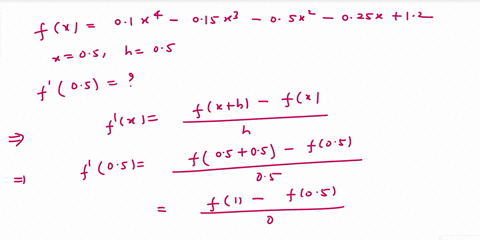 f(x) = 0.1x⁴ - 0.15x³ - 0.5x² - 0.25x + 1.2
x = 0.5, h = 0.5
f'(0.5) = ?
⇒ f'(x) = (f(x+h) - f(x)) / h
⇒ f'(0.5) = (f(0.5+0.5) - f(0.5)) / 0.5
= (f(1) - f(0.5)) / 0